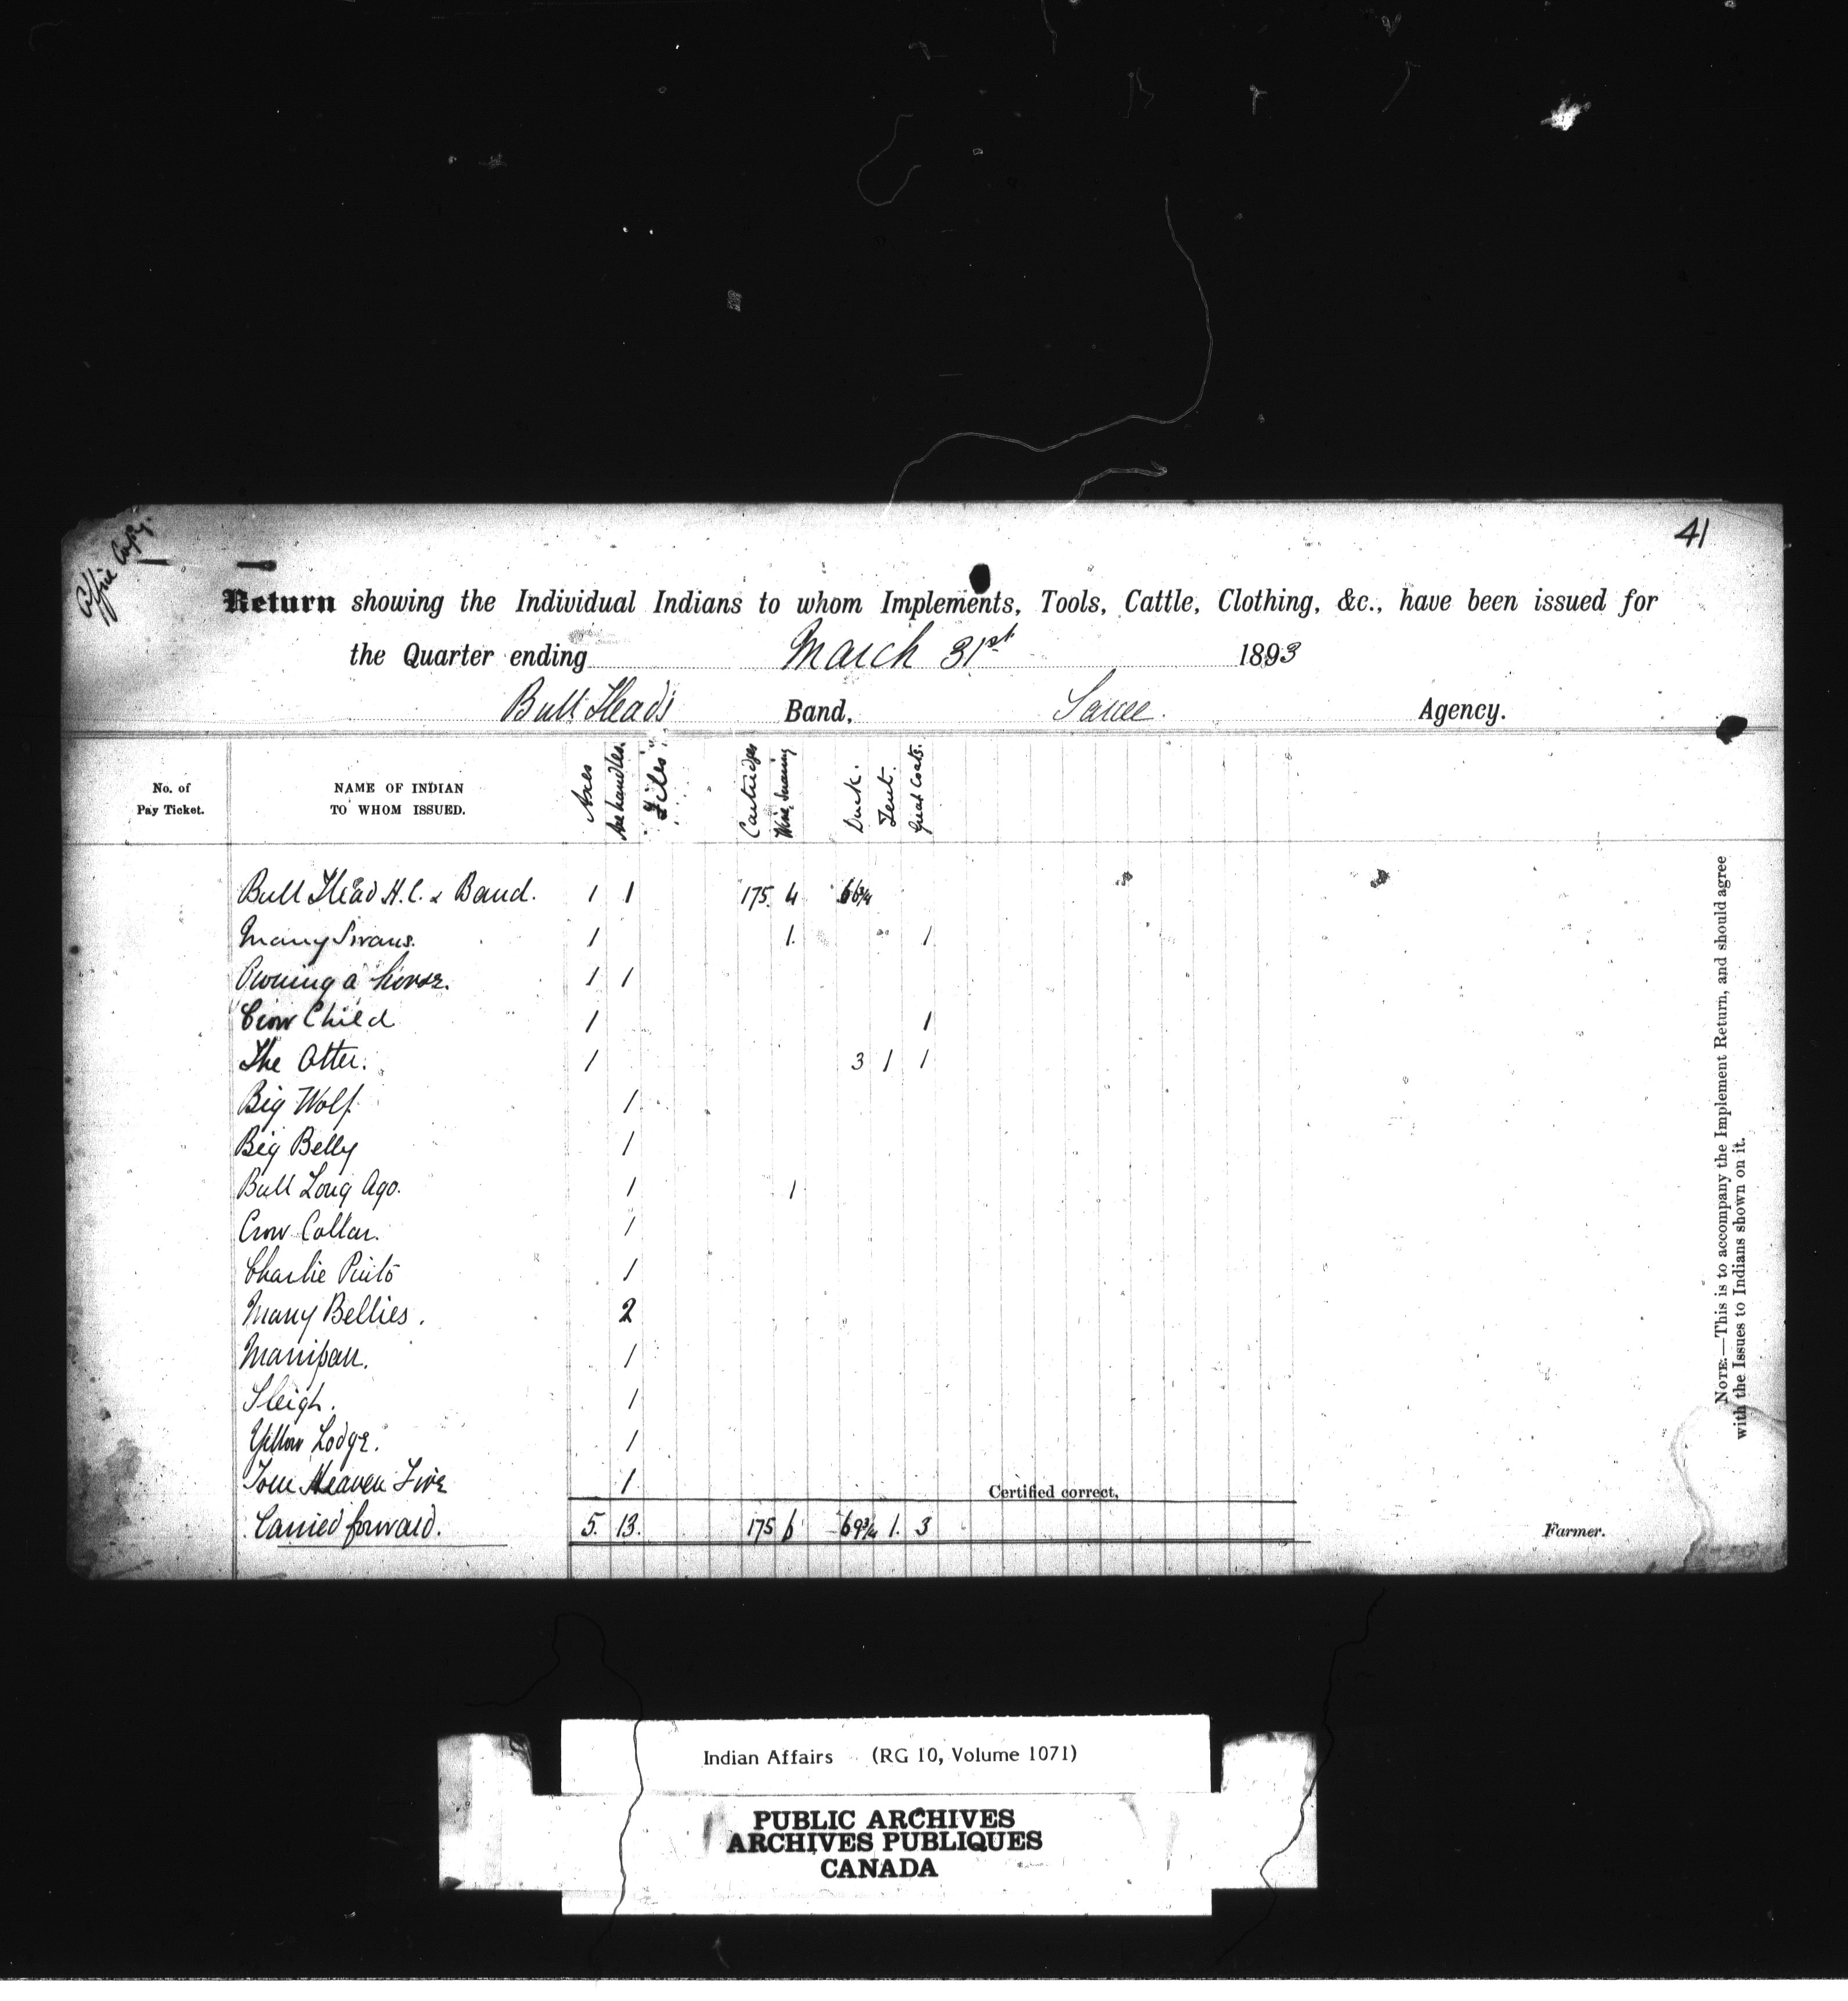 Office Copy.
41
Return showing the Individual Indians to whom Implements, Tools, Cattle, Clothing, &c., have been issued for
the Quarter ending March 31st 1893
Bull Head's Band, Sarcee. Agency.
No. of
Pay Ticket.
NAME OF INDIAN
TO WHOM ISSUED.
Axes
Axe handles.
Files
Cartridges
Wire, Snaring
Duck.
Tent.
Great Coats.
Bull Head H.C. & Band. 1 1 175. 4 66 3/4
Many Swans. 1 1. 1
Owning a horse. 1 1
Crow Child 1 1
The Otter. 1 3 1 1
Big Wolf 1
Big Belly 1
Bull Long Ago. 1 1
Crow Collar. 1
Charlie Pinto 1
Many Bellies. 2
1
Sleigh. 1
Yellow Lodge. 1
Tom Heaven Fire 1
Certified correct,
Carried forward. 5. 13. 175 6 69 3/4 1. 3
Farmer.
NOTE.—This is to accompany the Implement Return, and should agree
with the Issues to Indians shown on it.
Indian Affairs (RG 10, Volume 1071)
PUBLIC ARCHIVES
ARCHIVES PUBLIQUES
CANADA